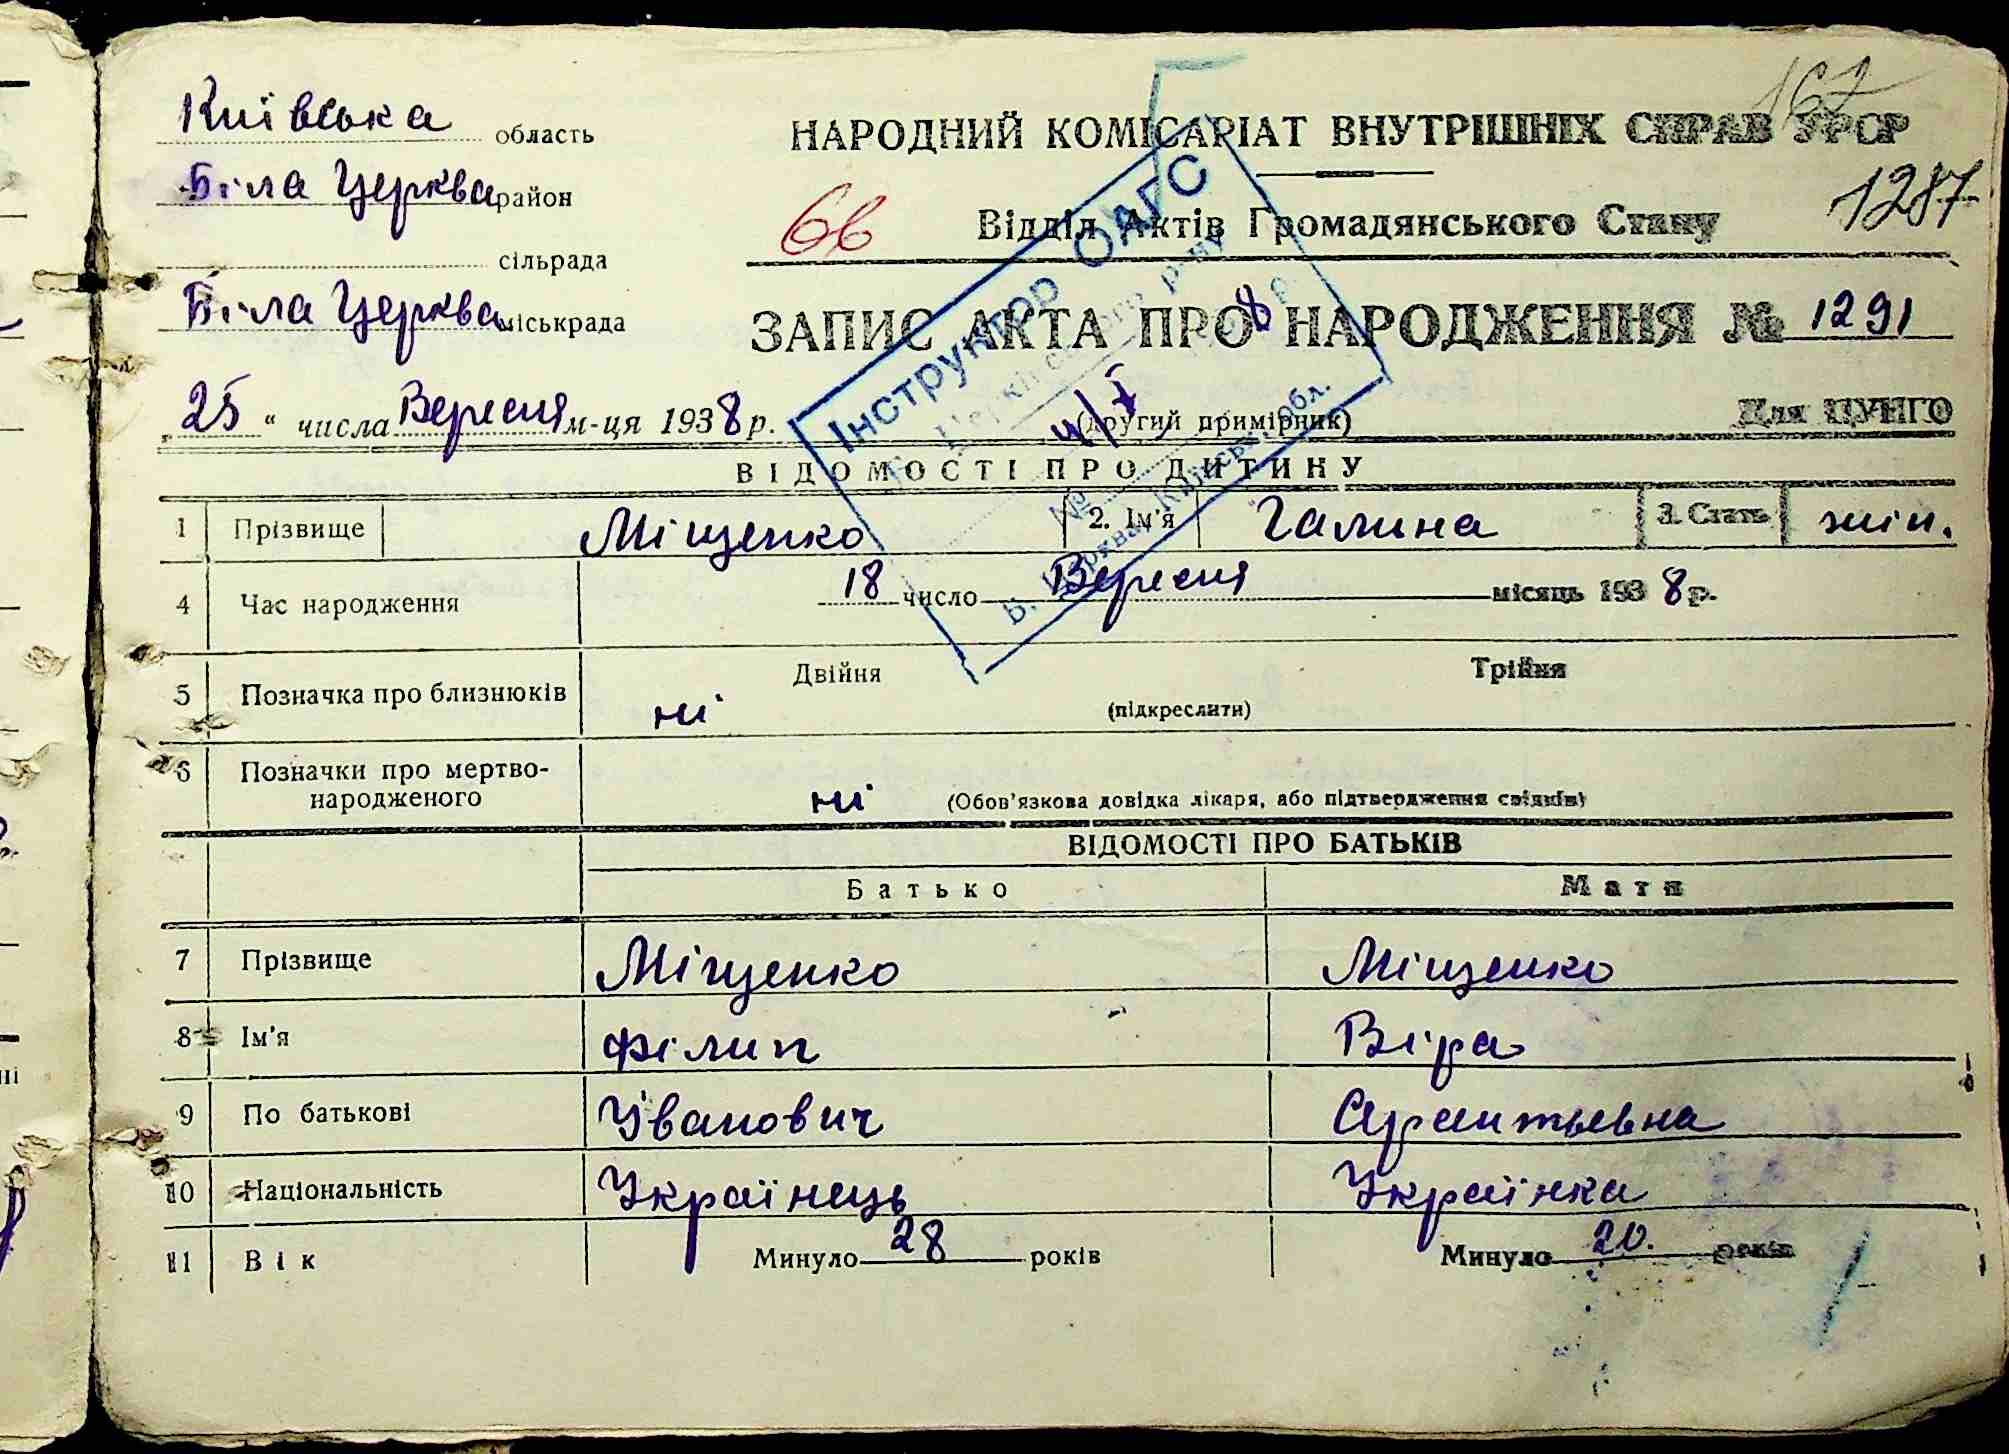 162
Київська область
НАРОДНИЙ КОМІСАРІАТ ВНУТРІШНІХ СПРАВ УРСР
Біла Церква район
66 Відділ Актів Громадянського Стану 1287
сільрада
Біла Церква міськрада
ЗАПИС АКТА ПРО НАРОДЖЕННЯ № 1291
„25“ числа Вересня м-ця 1938 р. (другий примірник) Для ЦУНГО
Інструктор ОАГС
№
Б. Церква, Київськ. обл.
ВІДОМОСТІ ПРО ДИТИНУ
1 Прізвище Міщенко 2. Ім'я Галина 3. Стать жін.
4 Час народження 18 число Вересня місяць 1938 р.
5 Позначка про близнюків ні Двійня Трійня
(підкреслити)
6 Позначки про мертво-
народженого ні (Обов'язкова довідка лікаря, або підтвердження свідків)
ВІДОМОСТІ ПРО БАТЬКІВ
Батько Мати
7 Прізвище Міщенко Міщенко
8 Ім'я Філип Віра
9 По батькові Іванович
10 Національність Українець Українка
11 Вік Минуло 28 років Минуло 20. років